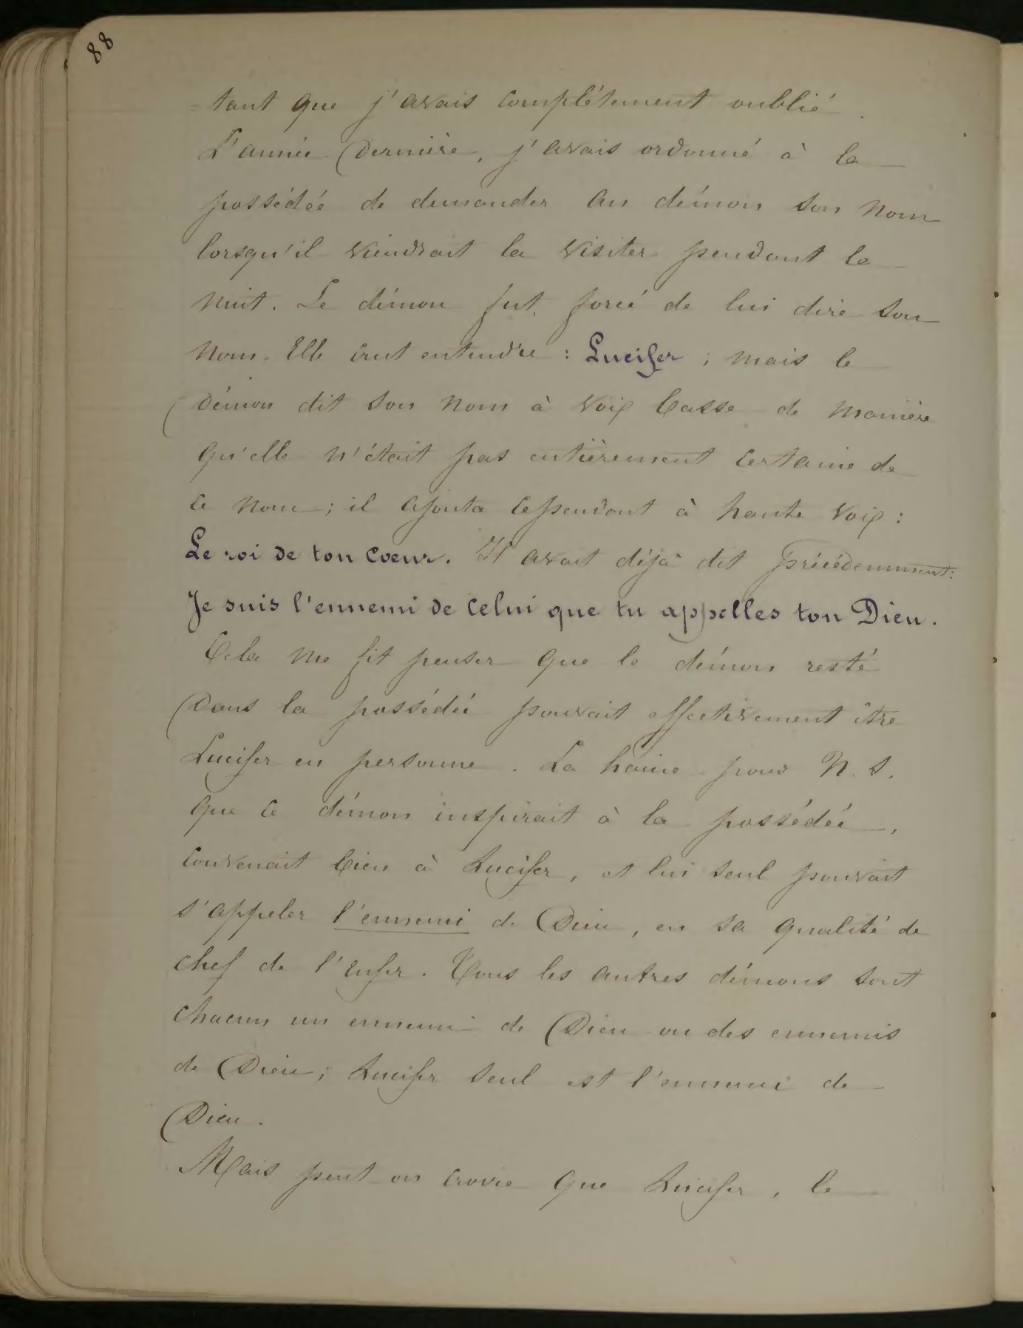 88
-tant que j'avais complétement oublié.
L'année Dernière, j'avais ordonné à la
possédée de demander au démon son nom
lorsqu'il viendrait la visiter pendant la
nuit. Le démon fut forcé de lui dire son
nom. Elle crut entendre : Lucifer ; mais le
Démon dit son nom à voix basse de manière
qu'elle n'était pas entièrement certaine de
ce nom ; il ajouta cependant à haute voix :
Le roi de ton coeur. Il avait déjà dit précédemment:
Je suis l'ennemi de celui que tu appelles ton Dieu.
Cela me fit penser que le démon resté
Dans la possédée pouvait effectivement être
Lucifer en personne. La haine pour N. S.
que ce démon inspirait à la possédée,
convenait bien à Lucifer, et lui seul pouvait
s'appeler l'ennemi de Dieu, en sa qualité de
chef de l'Enfer. Tous les autres démons sont
chacun un ennemi de Dieu ou des ennemis
de Dieu ; Lucifer seul est l'ennemi de
Dieu.
Mais peut-on croire que Lucifer, le